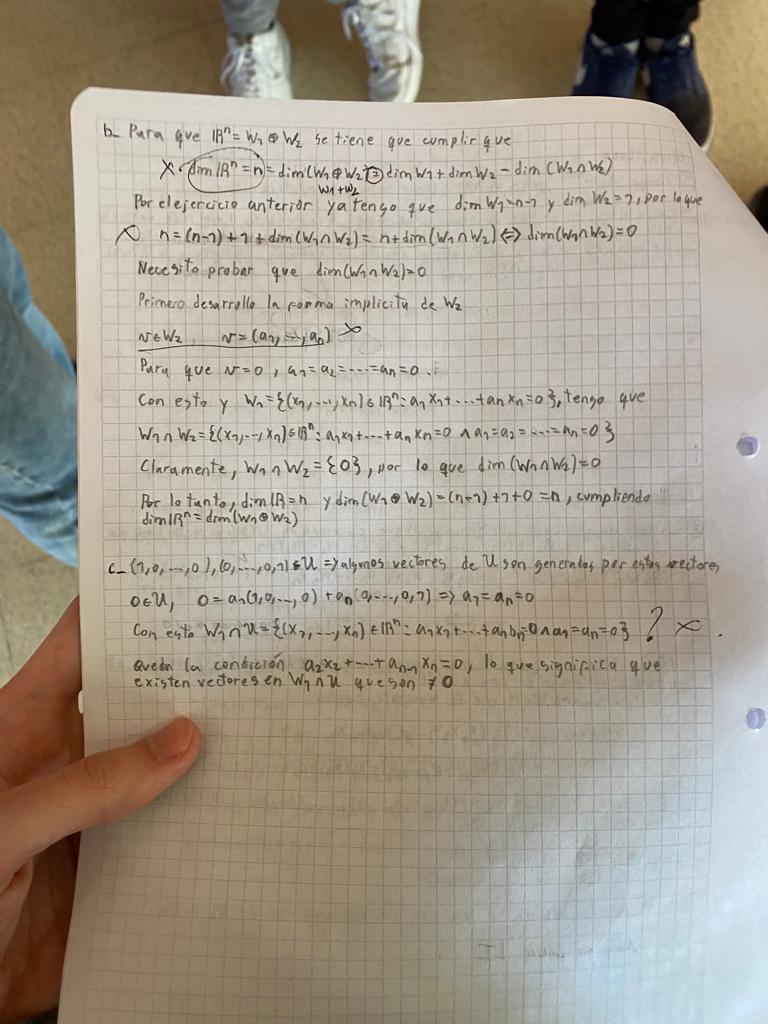 b_ Para que ℝⁿ = W₁ ⊕ W₂ se tiene que cumplir que
× · dim ℝⁿ = n = dim(W₁ ⊕ W₂) = dim W₁ + dim W₂ - dim (W₁ ∩ W₂)
W₁ + W₂
Por el ejercicio anterior ya tengo que dim W₁ = n-1 y dim W₂ = 1, por lo que
× n = (n-1) + 1 + dim(W₁ ∩ W₂) = n + dim(W₁ ∩ W₂) ⟺ dim(W₁ ∩ W₂) = 0
Necesito probar que dim(W₁ ∩ W₂) = 0
Primero desarrollo la forma implicita de W₂
v ∈ W₂ v = (a₁, ..., aₙ) ×
Para que v = 0, a₁ = a₂ = ---- = aₙ = 0.
Con esto y W₁ = {(x₁, ..., xₙ) ∈ ℝⁿ : a₁x₁ + ... + aₙxₙ = 0}, tengo que
W₁ ∩ W₂ = {(x₁, ..., xₙ) ∈ ℝⁿ : a₁x₁ + ... + aₙxₙ = 0 ∧ a₁ = a₂ = ---- = aₙ = 0}
Claramente, W₁ ∩ W₂ = {0}, por lo que dim(W₁ ∩ W₂) = 0
Por lo tanto, dim ℝ = n y dim(W₁ ⊕ W₂) = (n-1) + 1 + 0 = n, cumpliendo
dim ℝⁿ = dim(W₁ ⊕ W₂)
c_ (1,0,...,0), (0,...,0,1) ∈ U ⇒ algunos vectores de U son generados por estos vectores
0 ∈ U, 0 = a₁(1,0,...,0) + aₙ(0,...,0,1) ⇒ a₁ = aₙ = 0
Con esto W₁ ∩ U = {(x₁, ..., xₙ) ∈ ℝⁿ : a₁x₁ + ... + aₙbₙ = 0 ∧ a₁ = aₙ = 0} ? × .
Queda la condición a₂x₂ + ... + aₙ₋₁xₙ = 0, lo que significa que
existen vectores en W₁ ∩ U que son ≠ 0